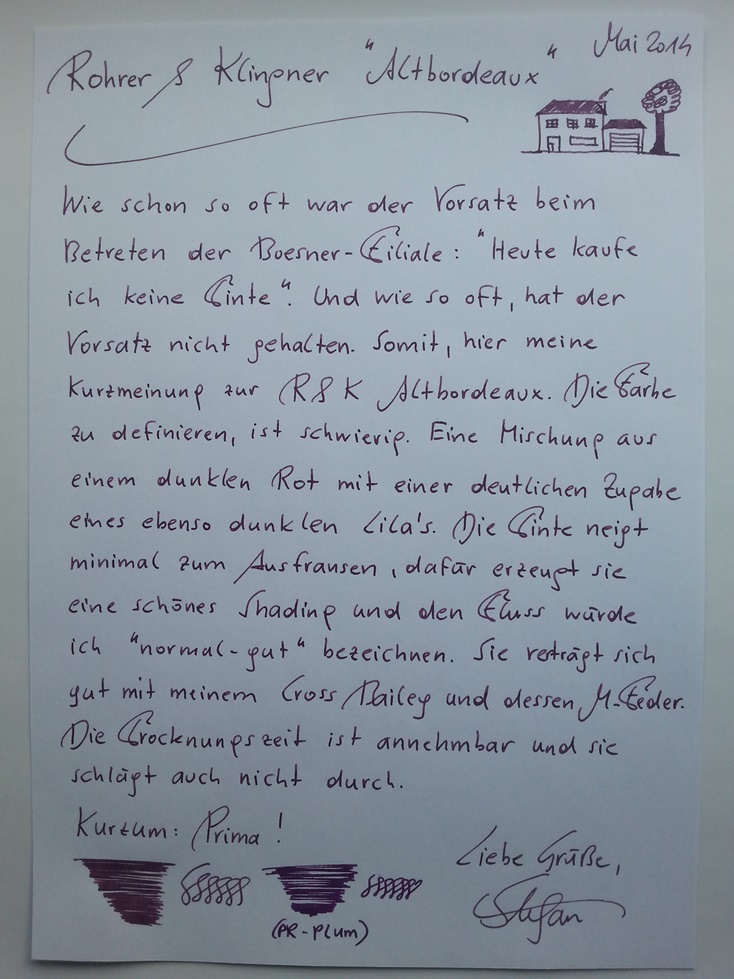 Rohrer & Klingner "Altbordeaux"
Mai 2014
Wie schon so oft war der Vorsatz beim
Betreten der Boesner-Filiale: "Heute kaufe
ich keine Tinte". Und wie so oft, hat der
Vorsatz nicht gehalten. Somit, hier meine
Kurzmeinung zur R&K Altbordeaux. Die Farbe
zu definieren, ist schwierig. Eine Mischung aus
einem dunklen Rot mit einer deutlichen Zugabe
eines ebenso dunklen Lila's. Die Tinte neigt
minimal zum Ausfransen, dafür erzeugt sie
eine schönes Shading und den Fluss würde
ich "normal-gut" bezeichnen. Sie verträgt sich
gut mit meinem Cross Bailey und dessen M-Feder.
Die Trocknungszeit ist annehmbar und sie
schlägt auch nicht durch.
Kurzum: Prima!
Liebe Grüße,
Stefan
(PR-Plum)